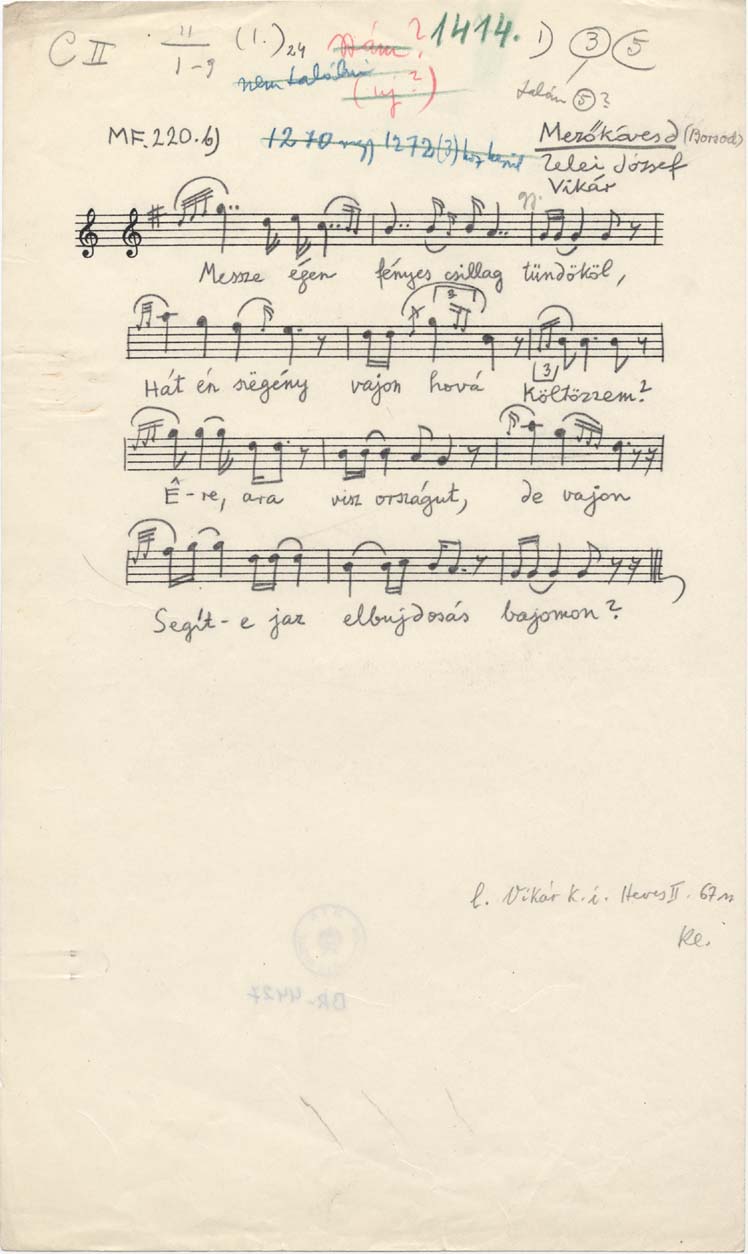 C II 11/1-9 (1.)24 Nám? 1414. 1) 3 5
nem található (uj?) talán 5?
MF. 220. b) 1270 vagy 1272(3) köz kerül Mezőkövesd (Borsod)
Zelei József
Vikár
Messze égen fényes csillag tündököl,
3
Hát én szëgény vajon hová költözzem?
3
Ê-re, ara visz országut, de vajon
Segít-e jaz elbujdosás bajomon?
l. Vikár k.i. Heves II. 67
Ke.
BR-4427